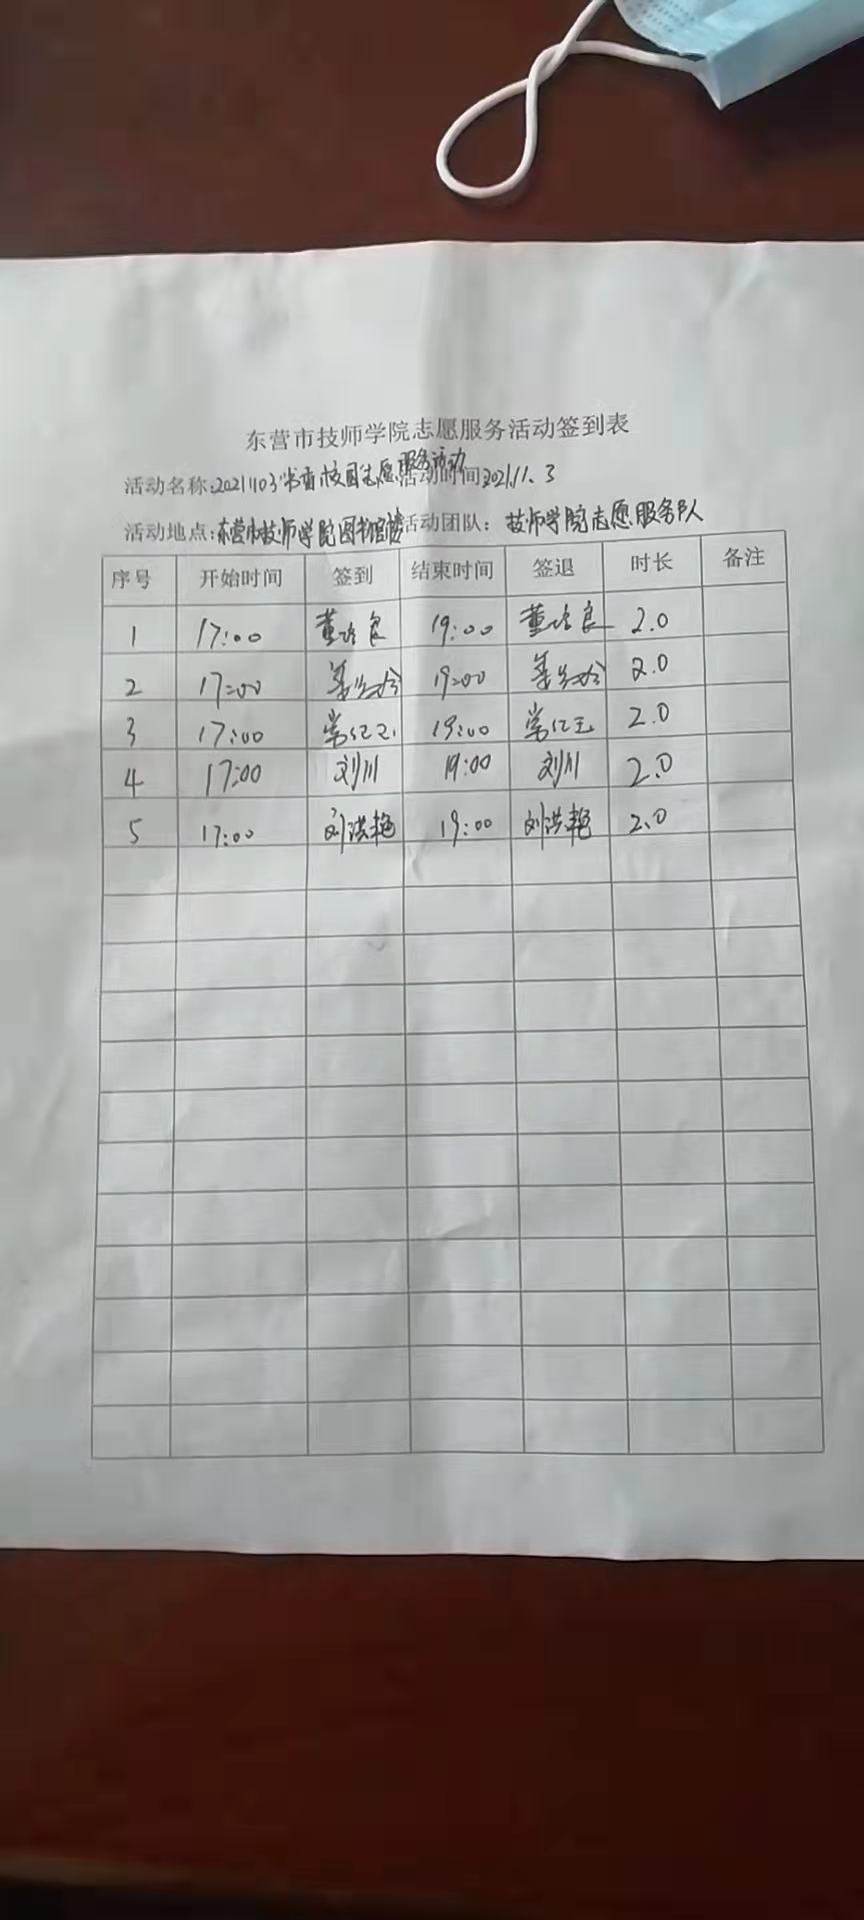 东营市技师学院志愿服务活动签到表
活动名称:20211103书香校园志愿服务活动 活动时间2021.11.3
活动地点:东营市技师学院图书馆楼 活动团队: 技师学院志愿服务队
序号 开始时间 签到 结束时间 签退 时长 备注
1 17:00 19:00 2.0
2 17:00 19:00 2.0
3 17:00 19:00 2.0
4 17:00 刘川 19:00 刘川 2.0
5 17:00 刘洪艳 19:00 刘洪艳 2.0